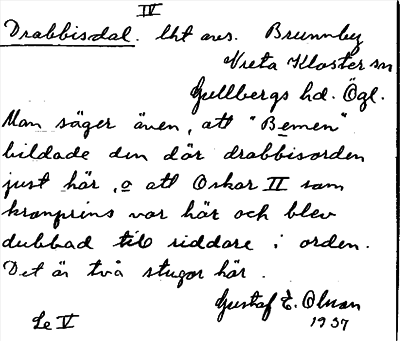 IV
Drabbisdal. lht avs. Brunnby
Vreta Kloster sn
Gullbergs hd. Ögl.
Man säger även, att "Bemen"
bildade den där drabbisorden
just här, o att Oskar II som
kronprins var här och blev
dubbad till riddare i orden.
Det är två stugor här.
Gustaf E. Olsson
Le V 1937